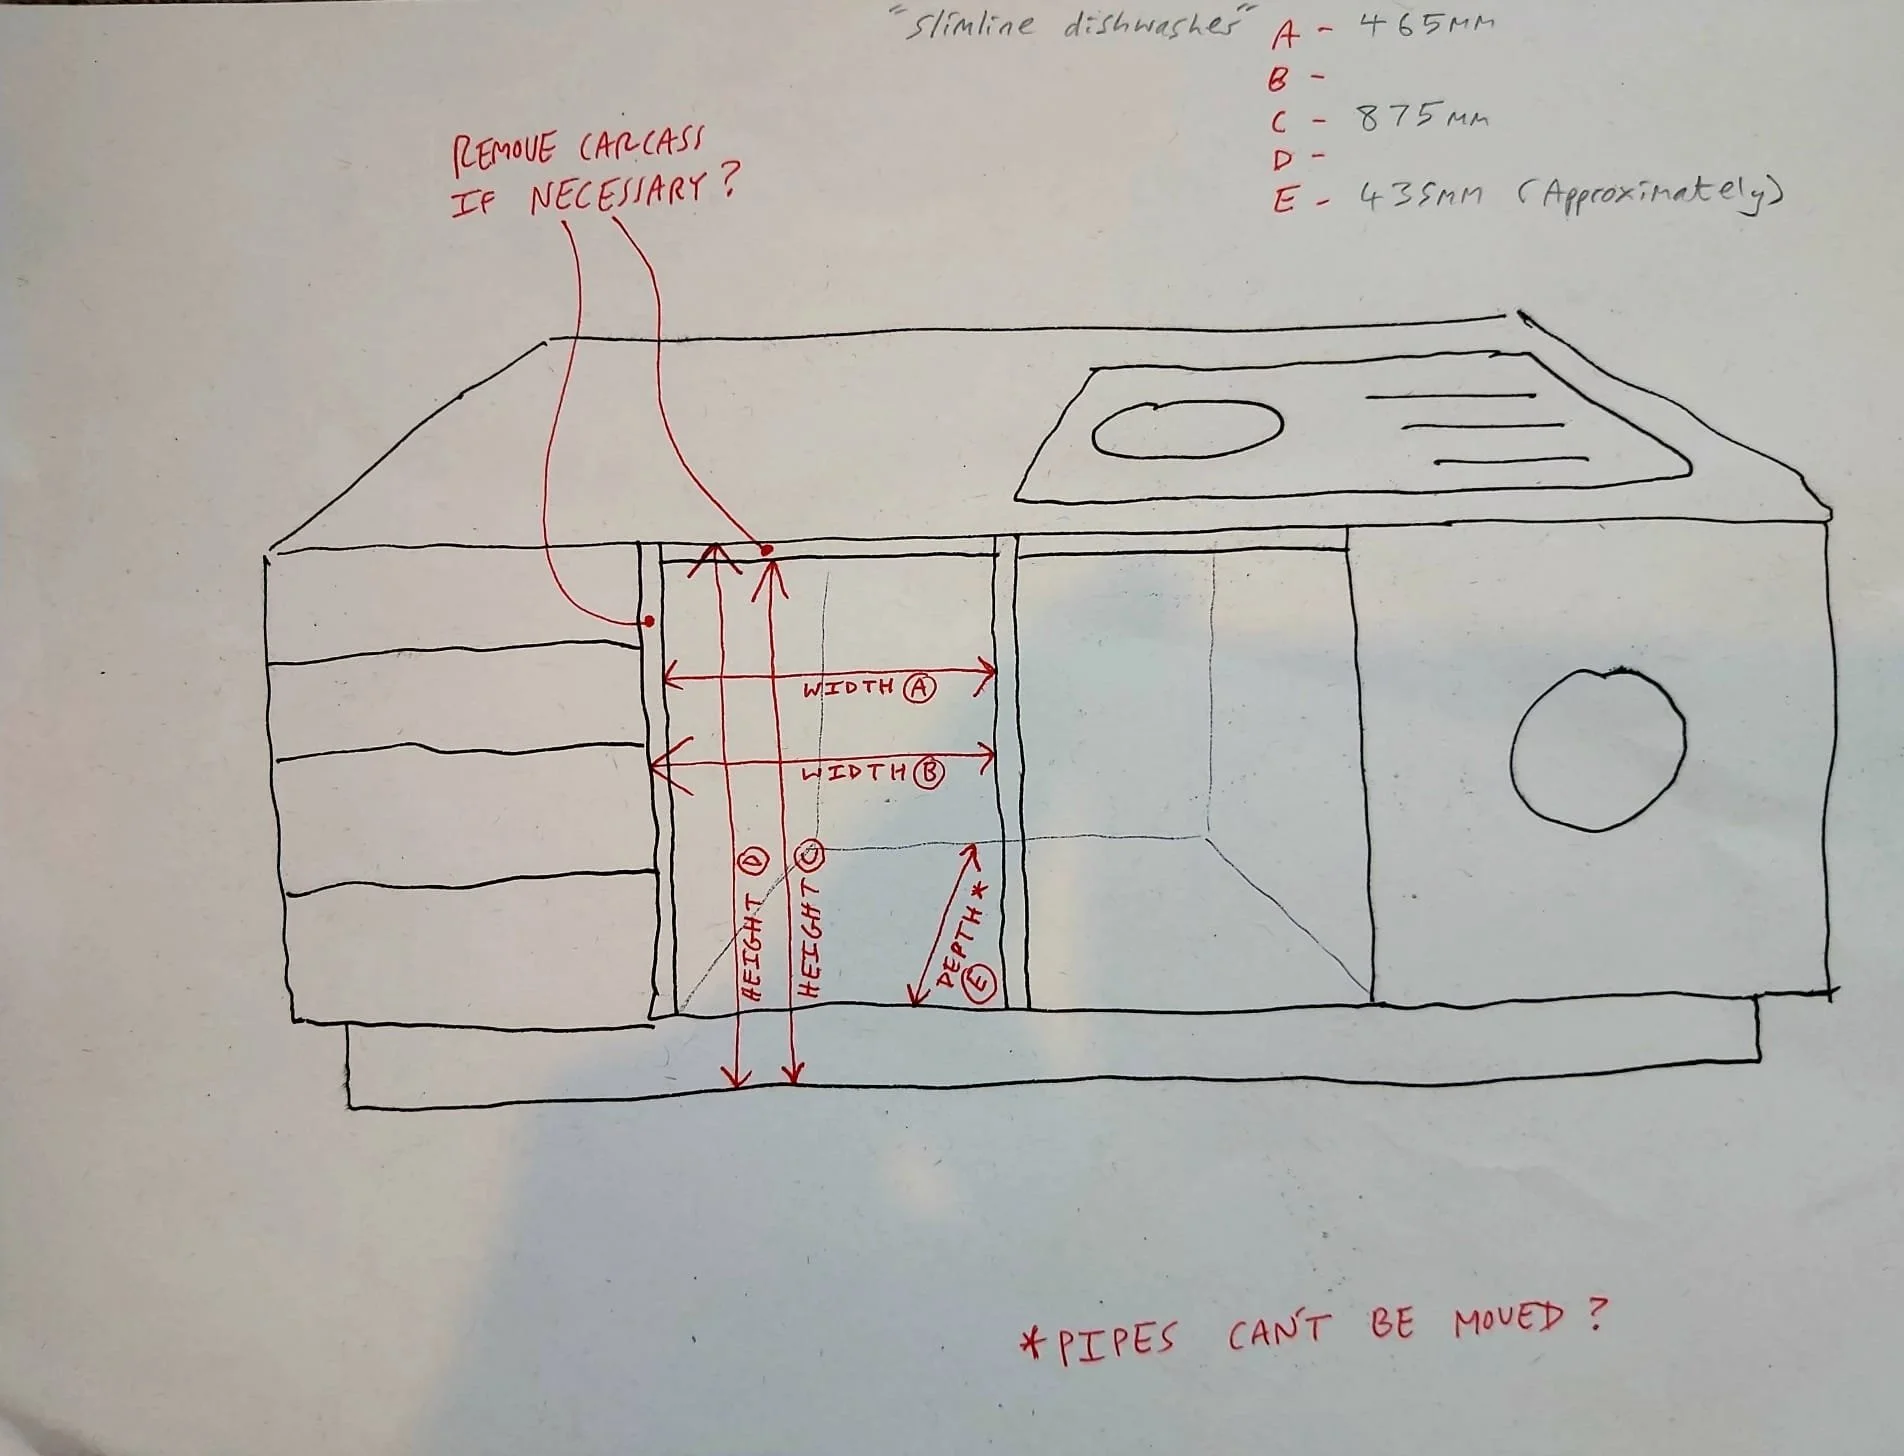 "slimline dishwasher"
A - 465mm
B -
C - 875mm
D -
E - 435mm (Approximately)
REMOVE CARCASS
IF NECESSARY?
WIDTH A
WIDTH B
HEIGHT D
HEIGHT C
DEPTH *
E
*PIPES CAN'T BE MOVED?